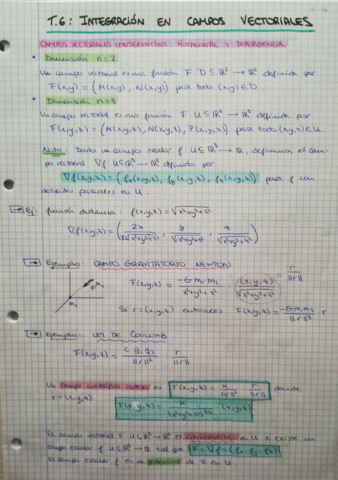 T.6: INTEGRACIÓN EN CAMPOS VECTORIALES
CAMPOS VECTORIALES CONSERVATIVOS. ROTACIONAL Y DIVERGENCIA
• Dimensión n=2
Un campo vectorial es una función F: D⊆ℝ² → ℝ² definida por
F(x,y) = (M(x,y), N(x,y)) para todo (x,y)∈D
• Dimensión n=3
Un campo vectorial es una función F: U⊆ℝ³ → ℝ³ definida por
F(x,y,z) = (M(x,y,z), N(x,y,z), P(x,y,z)) para todo (x,y,z)∈U.
Nota: Dado un campo escalar f: U⊆ℝ³ → ℝ, definimos el cam-
po vectorial ∇f: U⊆ℝ³ → ℝ³ definido por
∇f(x,y,z) = (fx(x,y,z), fy(x,y,z), fz(x,y,z)) para f con
derivadas parciales en U.
→ Ej: función distancia: f(x,y,z) = √x²+y²+z²
∇f(x,y,z) = (2x/2√x²+y²+z², y/√x²+y²+z², z/√x²+y²+z²)
→ Ejemplo: CAMPO GRAVITATORIO NEWTON
F(x,y,z) = -G m₁ m₂/x²+y²+z² (x,y,z)/√x²+y²+z² = r/||r||
m₁
Si r=(x,y,z) entonces F(x,y,z) = -G m₁ m₂/||r||³ r
→ Ejemplo: LEY DE COULOMB
F(x,y,z) = c q₁ q₂/||r||² r/||r||
Un campo cuadrático inverso es F(x,y,z) = k/||r||² r/||r|| donde
r=(x,y,z)
F(x,y,z) = k/(x²+y²+z²)^3/2 (x,y,z)
Un campo vectorial F: U⊆ℝ³ → ℝ³ es conservativo en U si existe un
campo escalar f: U⊆ℝ³ → ℝ tal que F = ∇f = (fx, fy, fz)
El campo escalar f es un potencial de F en U.